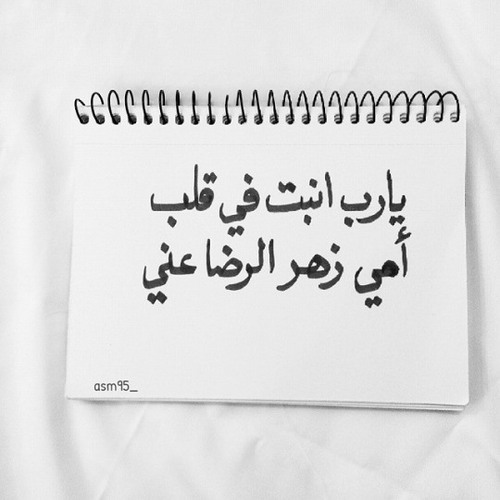 يارب انبت في قلب
أمي زهر الرضا عني
asm95_